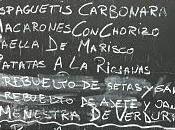 ESPAGUETIS CARBONARA
MACARONES CON CHORIZO
PAELLA DE MARISCO
PATATAS A LA RIOJANAS
REBUELTO DE SETAS Y
REBUELTO DE AJETE Y JA
MENESTRA DE VERDUR